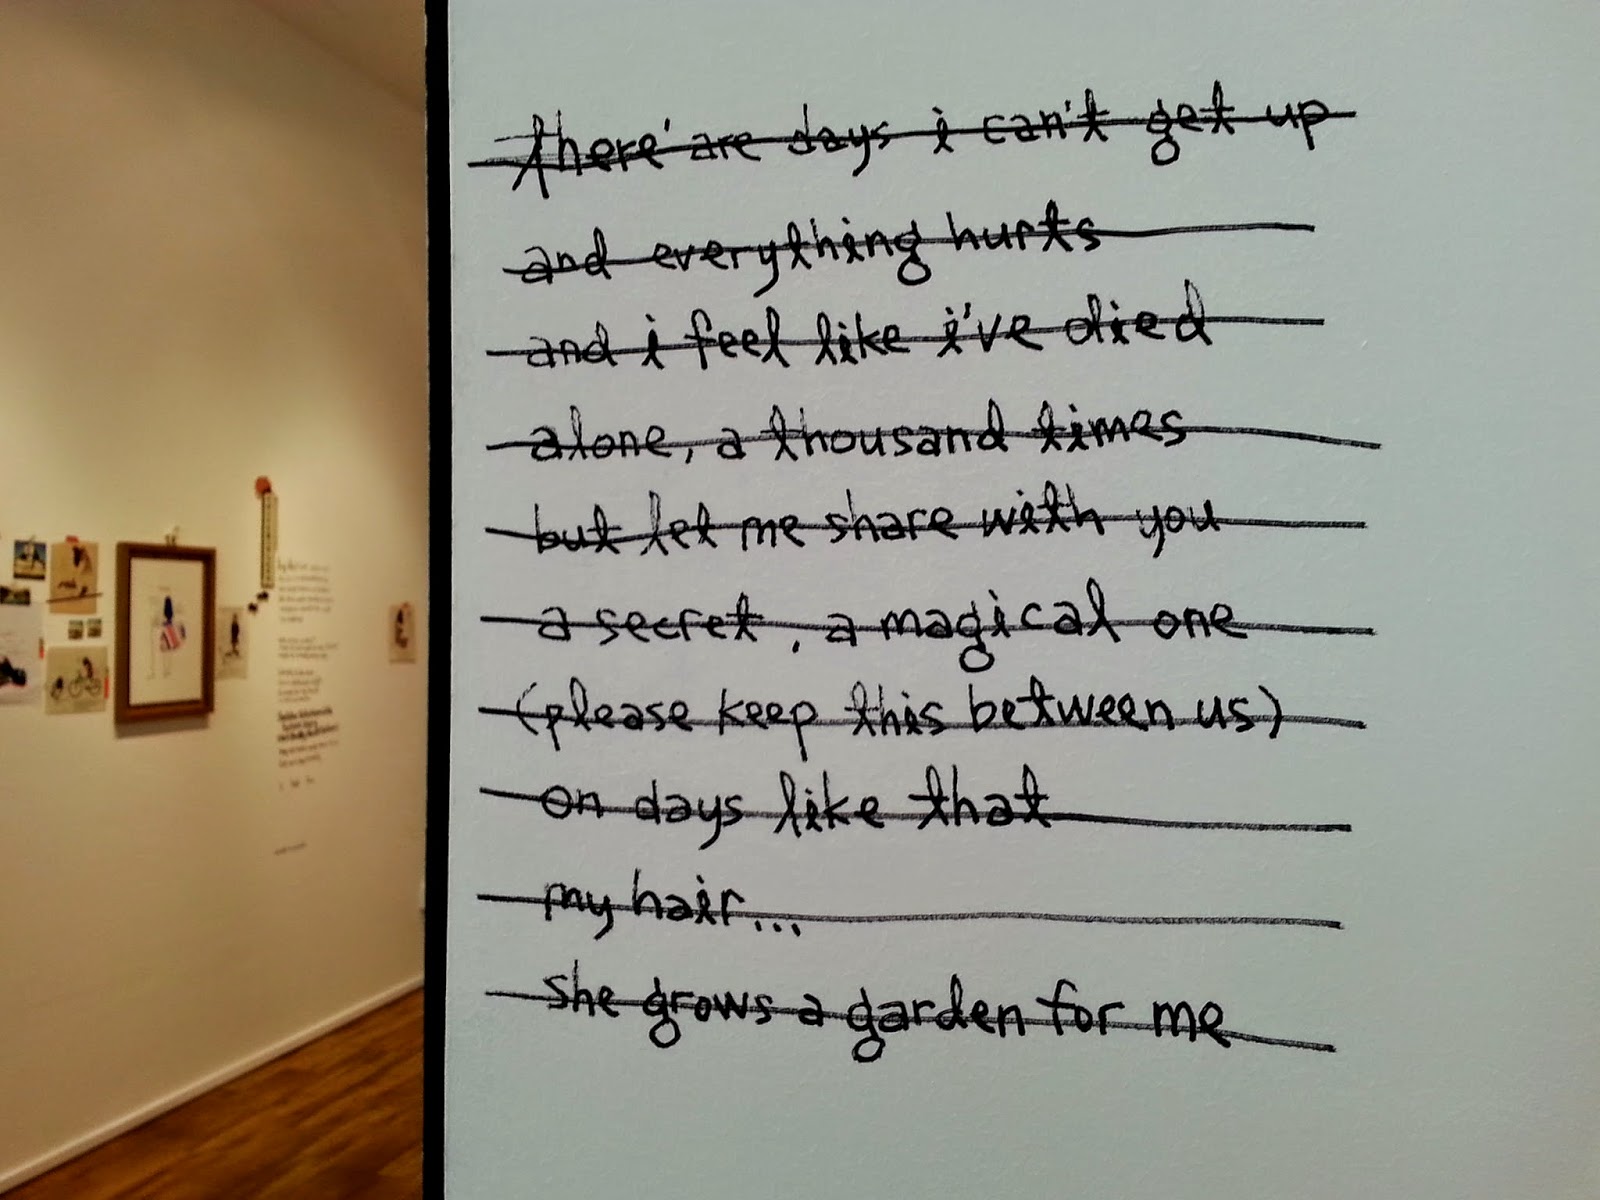 there' are days i can't get up
and everything hurts
and i feel like i've died
alone, a thousand times
but let me share with you
a secret, a magical one
(please keep this between us)
on days like that
my hair...
she grows a garden for me